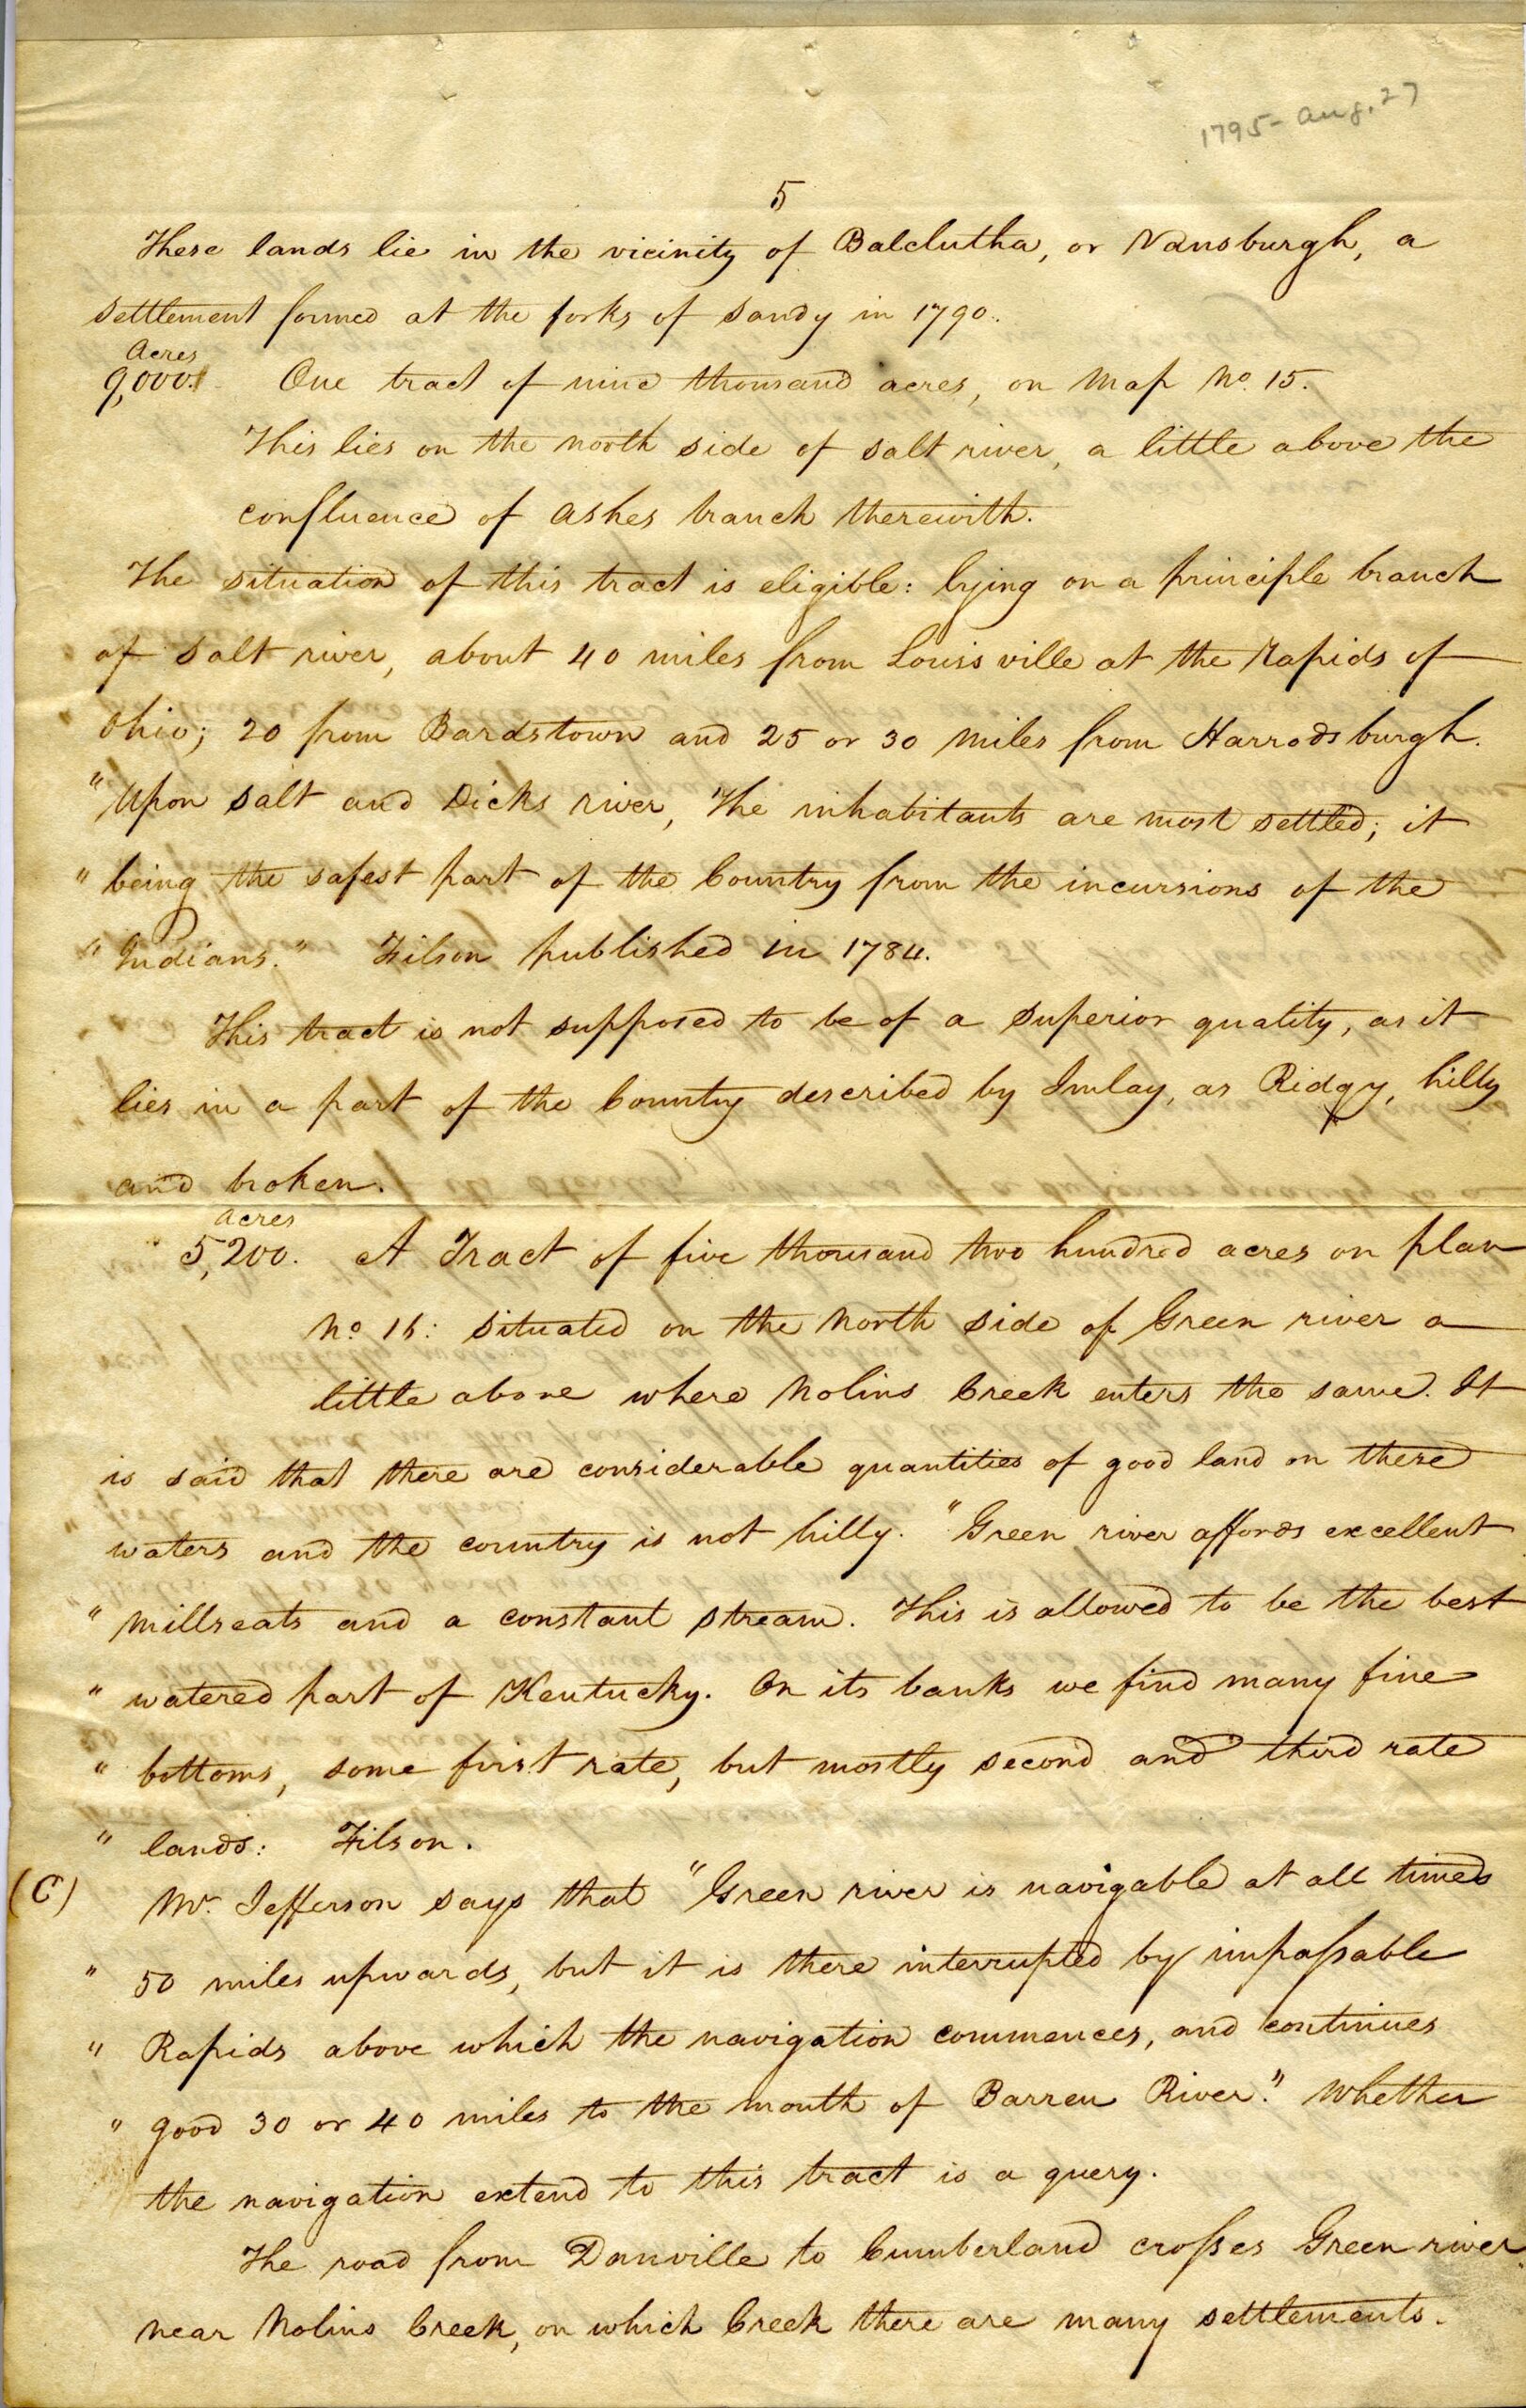 1795- Aug. 27
5
These lands lie in the vicinity of Balclutha, or Vansburgh, a
settlement formed at the forks of Sandy in 1790.
Acres
9,000. One tract of nine thousand acres, on Map No. 15.
This lies on the North side of Salt river, a little above the
confluence of Ashes branch therewith.
The situation of this tract is eligible: lying on a principle branch
of Salt river, about 40 miles from Louisville at the Rapids of
Ohio; 20 from Bardstown and 25 or 30 Miles from Harrodsburgh.
"Upon Salt and Dicks river, The inhabitants are most settled; it
" being the safest part of the Country from the incursions of the
" Indians." Filson published in 1784.
This tract is not supposed to be of a Superior quality, as it
lies in a part of the Country described by Imlay, as Ridgy, hilly
and broken.
Acres
5,200. A Tract of five thousand two hundred acres on plan
No 16: Situated on the North side of Green river a
little above where Nolins Creek enters the same. It
is said that there are considerable quantities of good land on these
waters and the country is not hilly. "Green river affords excellent
" Millseats and a constant stream. This is allowed to be the best
" watered part of Kentucky. On its banks we find many fine
" bottoms, some first rate, but mostly second and third rate
" lands: Filson.
(C) Mr. Jefferson says that "Green river is navigable at all times
" 50 miles upwards, but it is there interrupted by impaſsable
" Rapids above which the navigation commences, and continues
" good 30 or 40 miles to the mouth of Barren River." Whether
the navigation extend to this tract is a query.
The road from Danville to Cumberland croſses Green river
near Nolins Creek, on which Creek there are many settlements.